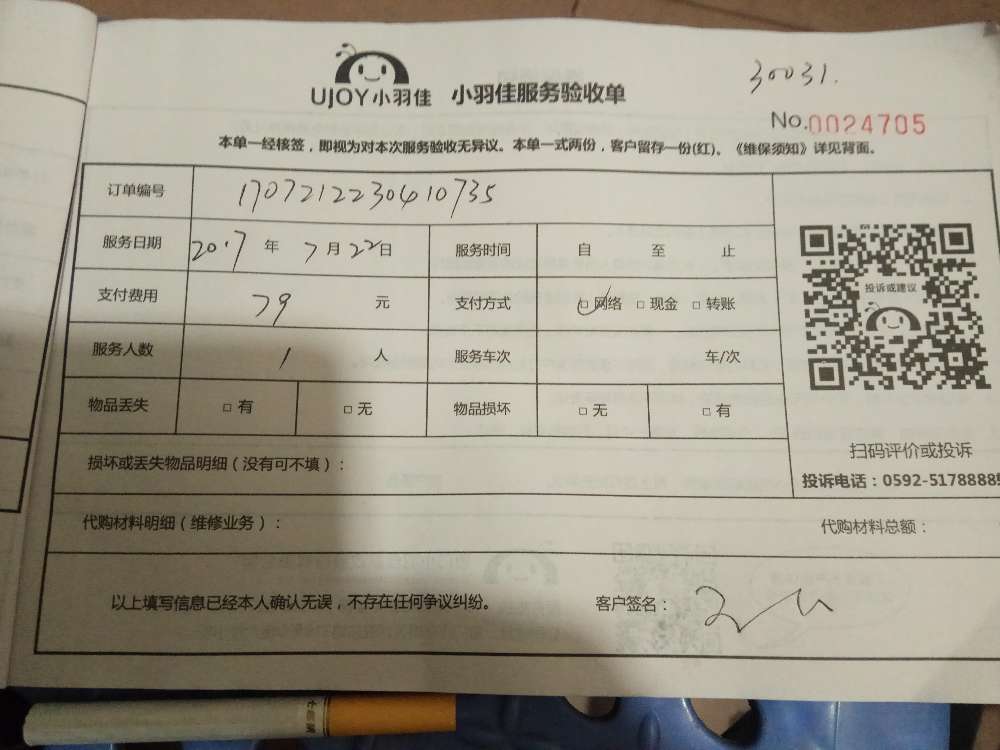 30031.
UJOY小羽佳 小羽佳服务验收单
No.0024705
本单一经核签，即视为对本次服务验收无异议。本单一式两份，客户留存一份(红)。《维保须知》详见背面。
订单编号 170721223040735
服务日期 2017年7月22日 服务时间 自 至 止
投诉或建议
支付费用 79 元 支付方式 ☑网络 □现金 □转账
服务人数 1 人 服务车次 车/次
物品丢失 □有 □无 物品损坏 □无 □有
扫码评价或投诉
损坏或丢失物品明细（没有可不填）：
投诉电话：0592-5178888
代购材料明细（维修业务）： 代购材料总额：
以上填写信息已经本人确认无误，不存在任何争议纠纷。 客户签名：